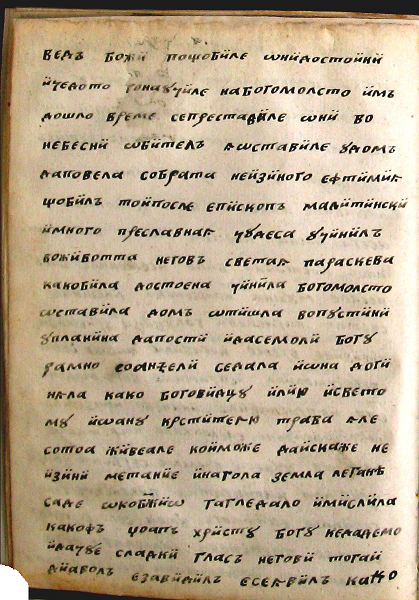 ведъ божїи пощобиле ѡнидостойни
ичедото гонаучиле набогомолсто имъ
дошло време сепреставиле ѡни во
небесни ѡбителъ аѡставиле удомъ
даповела собрата неизиного ефтимиѧ
щобилъ тойпосле епископъ мадитински
имного преславнаѧ чудеса учинилъ
боживотта неговъ светаѧ параскева
какобила достоена учинила богомолсто
ѡставила домъ ѡтишла вопустини
упланина дапости идасемоли богу
рамно соанѕели седала иѡна доги
няла како боговидцу илию исвето
му иѡану крстителю трава яле
сотоа живеале койможе даискаже не
изини метание инагола земла легане
саде ѡкобжиѡ татгледало имислила
какофъ цоатъ христу богу кедадемо
идачуе сладки гласъ негови тогай
дїаволъ езавидилъ есеявилъ како